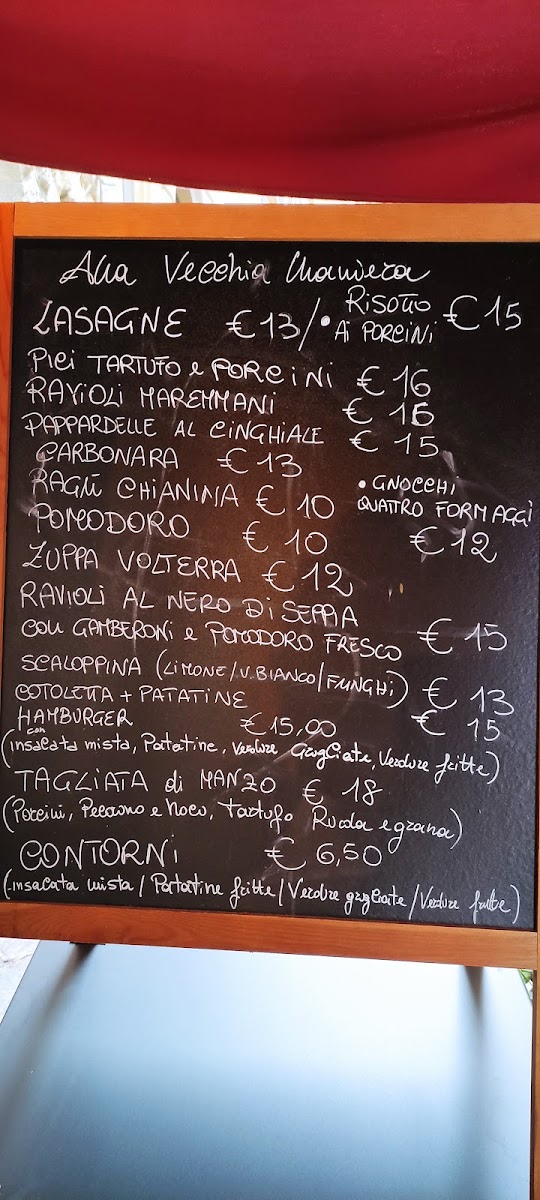 Alla Vecchia Maniera
LASAGNE €13/ • RISOTTO AI PORCINI €15
PICI TARTUFO e PORCINI €16
RAVIOLI MAREMMANI €16
PAPPARDELLE AL CINGHIALE €15
CARBONARA €13
RAGÙ CHIANINA €10
• GNOCCHI
QUATTRO FORMAGGI
€12
POMODORO €10
ZUPPA VOLTERRA €12
RAVIOLI AL NERO DI SEPPIA
CON GAMBERONI e POMODORO FRESCO €15
SCALOPPINA (LIMONE/V.BIANCO/FUNGHI) €13
COTOLETTA + PATATINE €15
HAMBURGER €15,00
con
(insalata mista, Patatine, verdure Grigliate, Verdure fritte)
TAGLIATA di MANZO €18
(Porcini, Pecorino e Noci, Tartufo Rucola e grana)
CONTORNI €6,50
(insalata mista / Patatine fritte / Verdure grigliate / Verdure fritte)